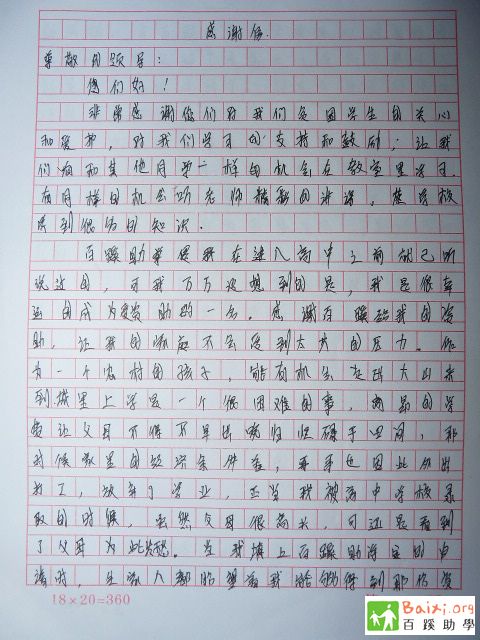 感谢信.
尊敬的领导:
您们好!
非常感谢您们对我们贫困学生的关心
和爱护,对我们学习的支持和鼓励;让我
们有和其他同学一样的机会在教室里学习,
有同样的机会听老师精彩的讲课,在学校
学到很多的知识.
百蹊助学使我在进入高中之前就已听
说过的,可我万万没想到的是,我是很幸
运的成为受资助的一名。感谢百蹊给我的资
助,让我的家庭不会受到太大的压力。作
为一个农村的孩子,能有机会走出大山来
到城里上学是一个很困难的事,高昂的学
费让父母不得不早出晚归忙碌于田间,那
时候家里的经济条件差,哥哥也因此外出
打工,放弃了学业,正当我被高中学校录
取的时候,虽然父母很高兴,可还是看到
了父母为此发愁。当我填上百蹊助学金的申
请时,全家人都盼望着我能够得到那份资
18×20=360
Baixi.org
百蹊助學